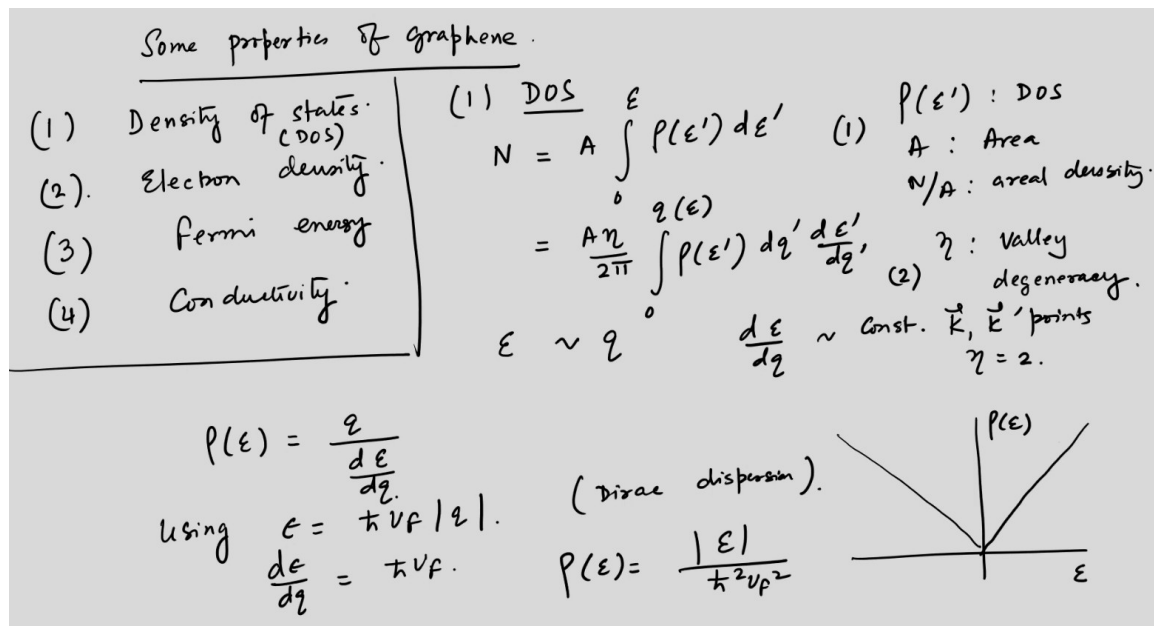 Some properties of graphene.
(1) Density of states.
(DOS)
(2). Electron density.
(3) Fermi energy
(4) Conductivity.
(1) DOS
N = A ∫₀^ε ρ(ε') dε' (1)
= Aη/2π ∫₀^q(ε) ρ(ε') dq' dε'/dq' (2)
ε ~ q dε/dq ~ Const.
ρ(ε') : DOS
A : Area
N/A : areal density.
η : Valley
degeneracy.
K⃗, K⃗' points
η = 2.
ρ(ε) = q / (dε/dq)
Using ε = ħ v_F |q|. (Dirac dispersion).
dε/dq = ħ v_F. ρ(ε) = |ε| / ħ² v_F²
ρ(ε)
ε